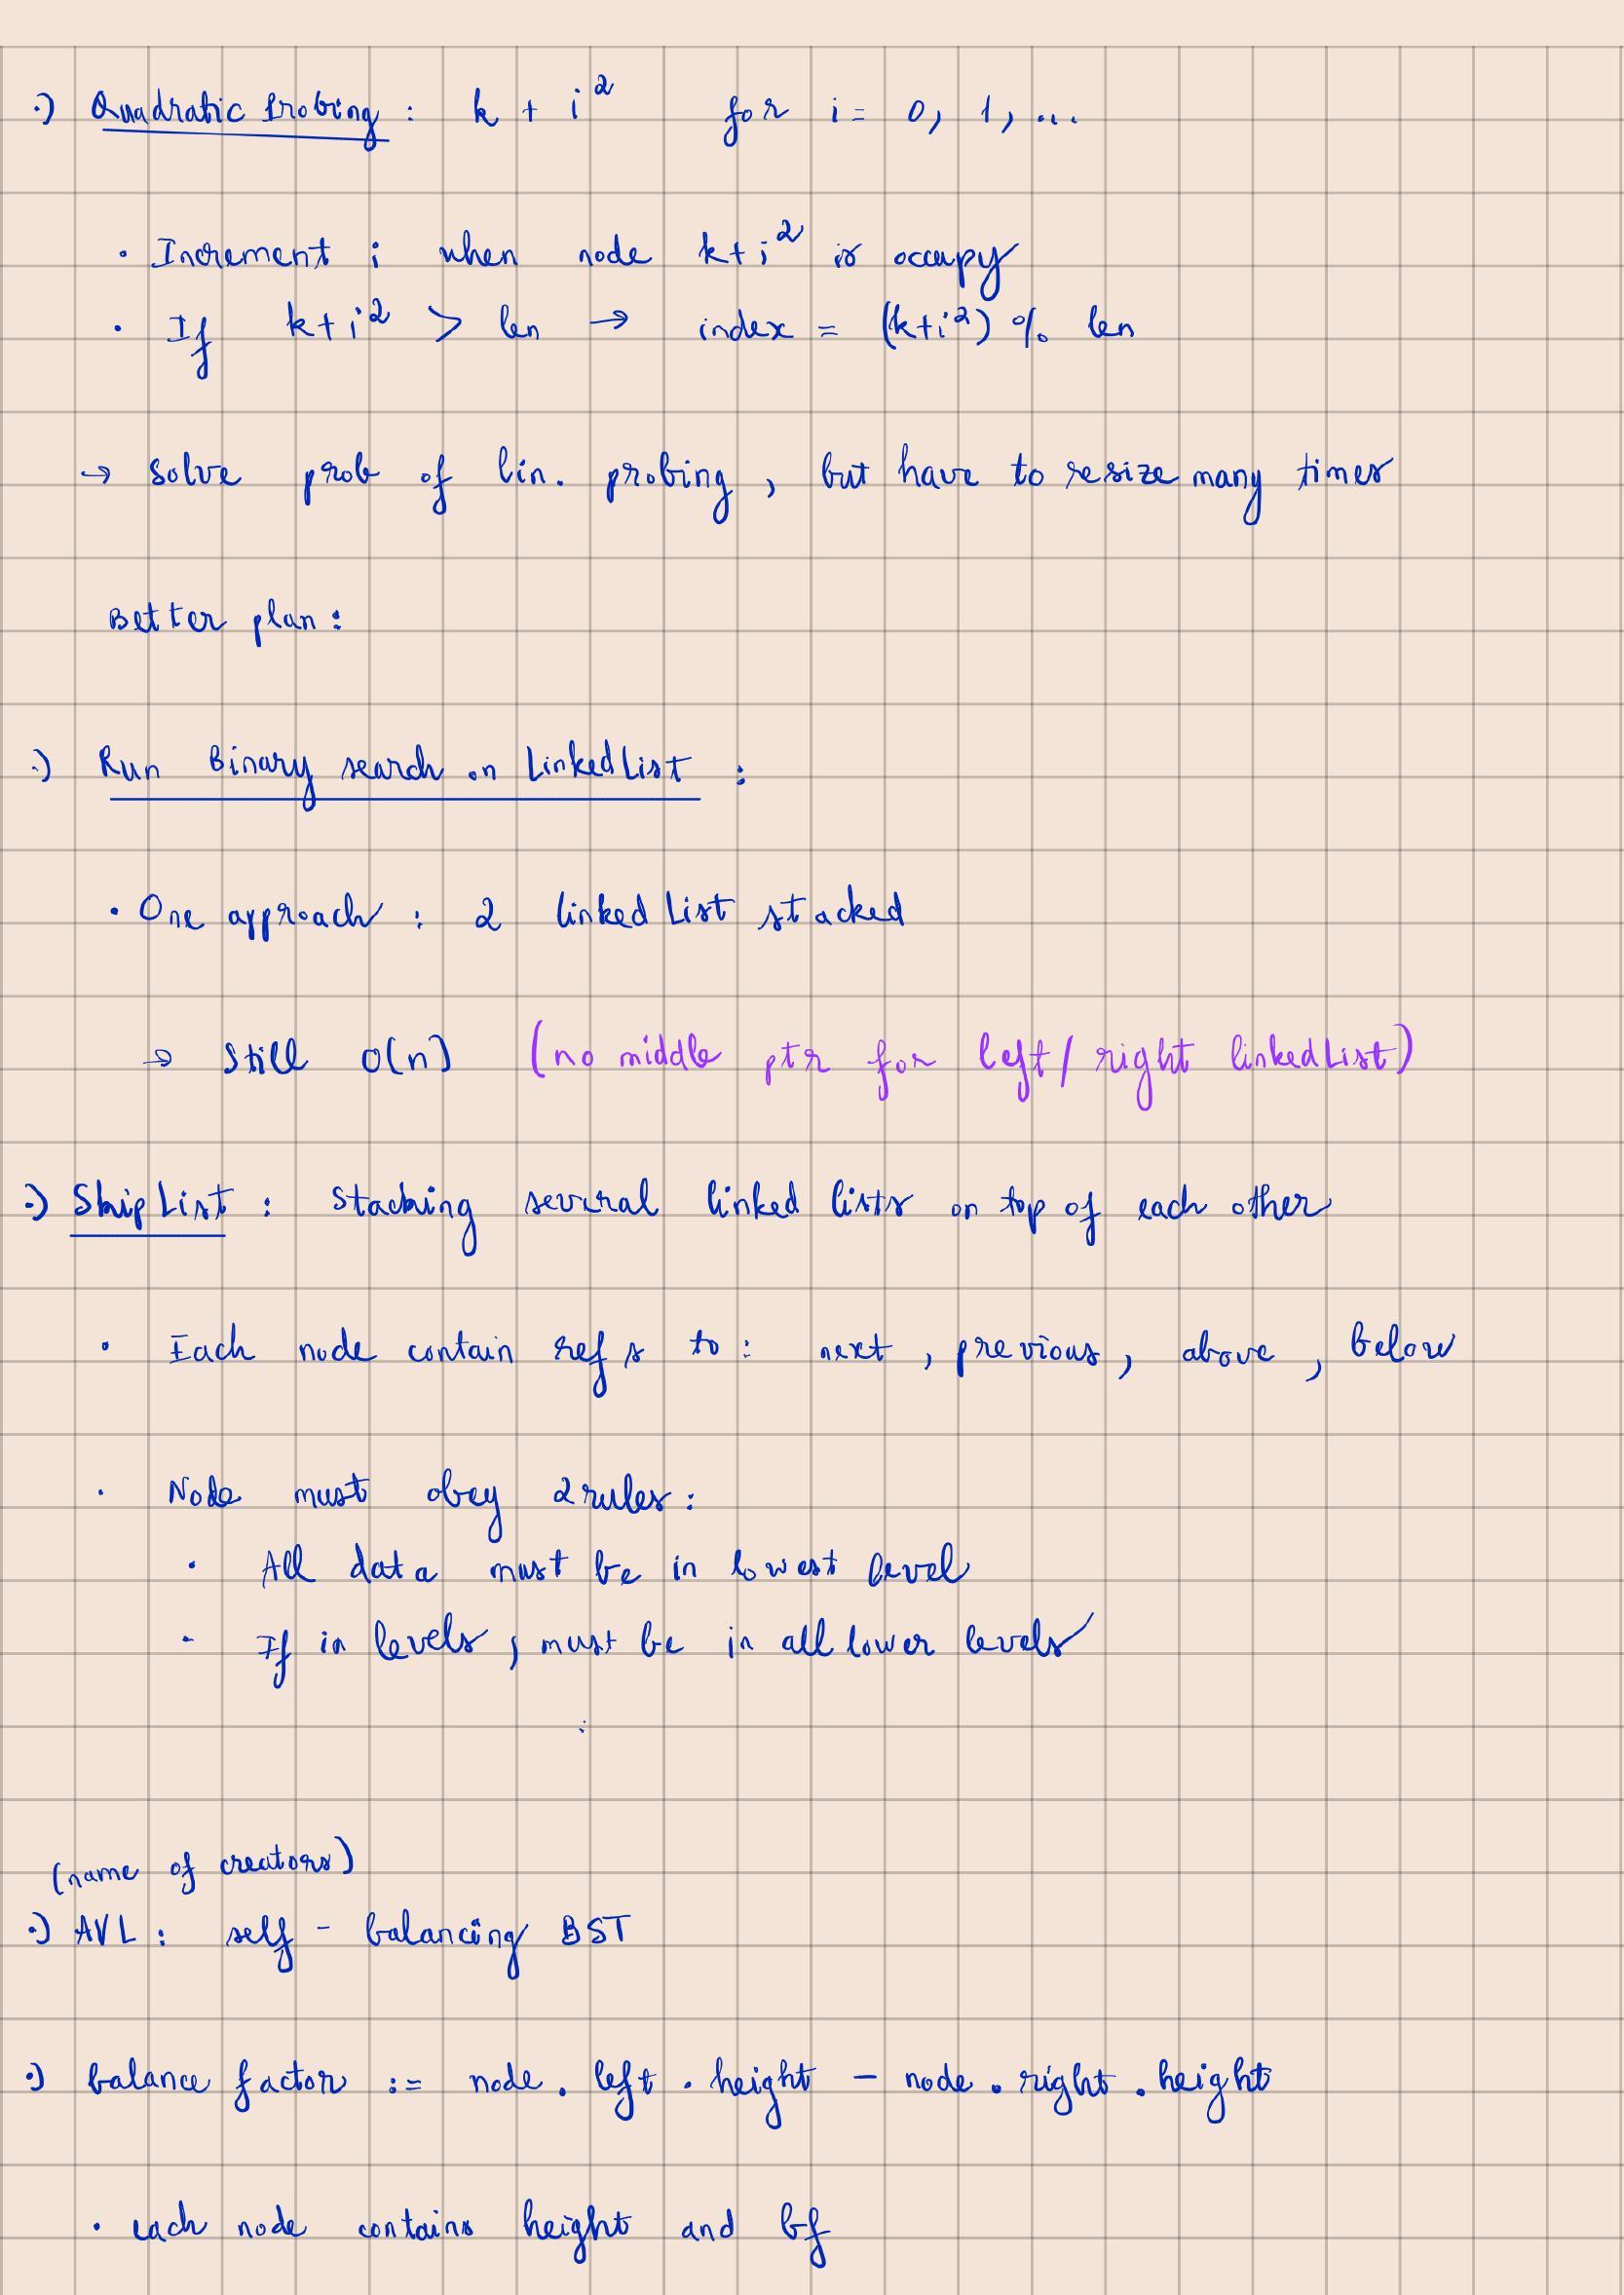 ·) Quadratic Probing : k + i² for i = 0, 1, ...
· Increment i when node k+i² is occupy
· If k+i² > len → index = (k+i²) % len
→ solve prob of lin. probing , but have to resize many times
Better plan :
·) Run Binary search on LinkedList :
· One approach : 2 linked List stacked
→ Still O(n) (no middle ptr for left / right linkedList)
·) SkipList : Stacking several linked lists on top of each other
· Each node contain refs to : next , previous , above , below
· Node must obey 2 rules :
· All data must be in lowest level
· If in levels , must be in all lower levels
(name of creators)
·) AVL : self - balancing BST
·) balance factor := node . left . height - node . right . height
· each node contains height and bf